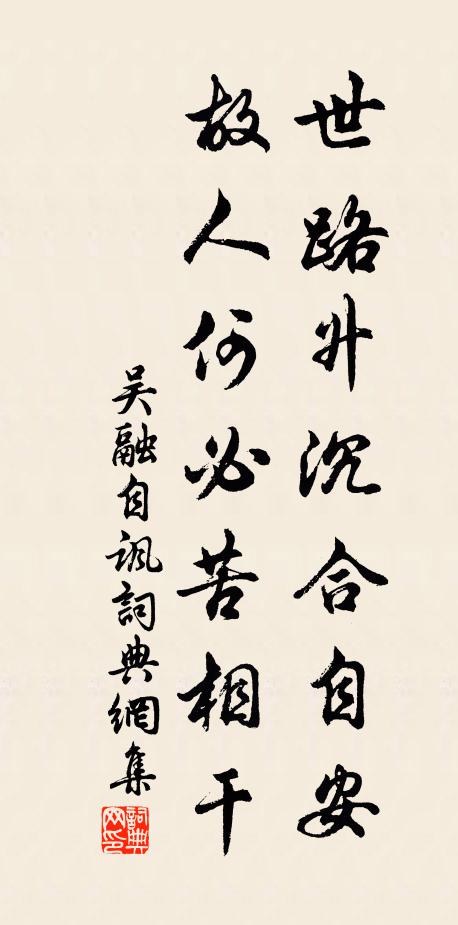 世路升沉合自安
故人何必苦相干
吴融自諷詞典網集
詞典网印